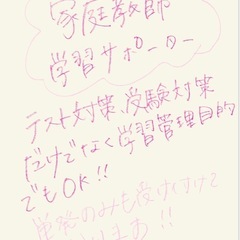 家庭教師
学習サポーター
テスト対策、受験対策
だけでなく学習管理目的
でもOK!!
単発のみも受け付けて
います!!